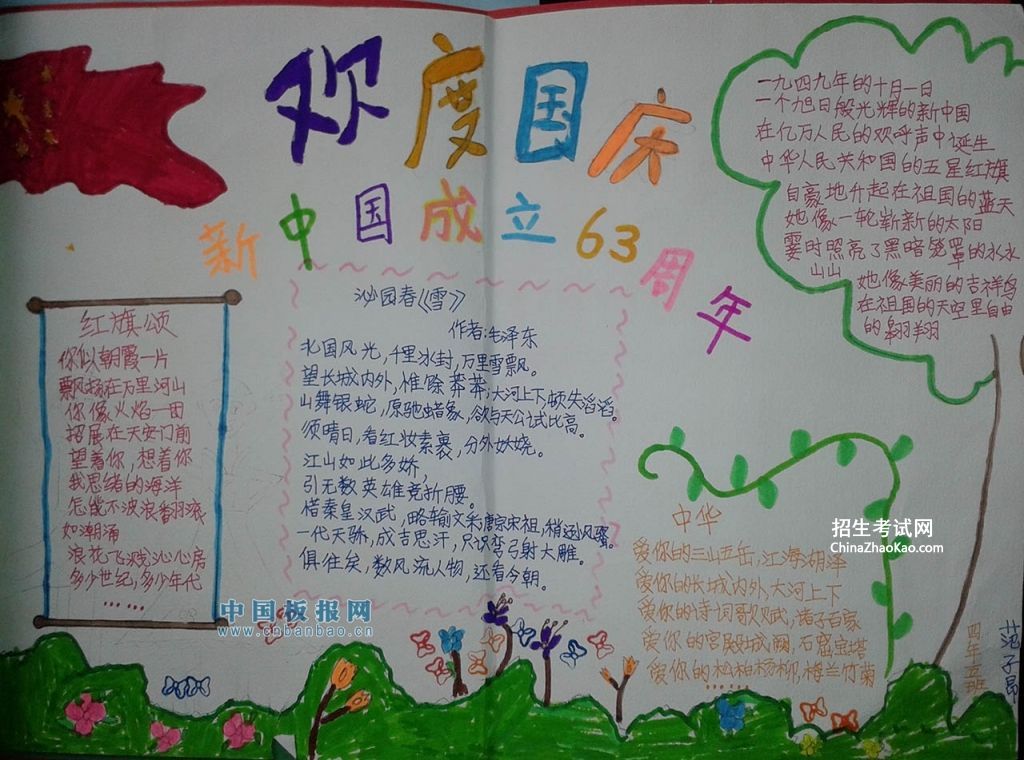 欢度国庆
新中国成立63周年
一九四九年的十月一日
一个旭日般光辉的新中国
在亿万人民的欢呼声中诞生
中华人民共和国的五星红旗
自豪地升起在祖国的蓝天
她像一轮崭新的太阳
霎时照亮了黑暗笼罩的水水
山山
她像美丽的吉祥鸟
在祖国的天空里自由
的翱翔
沁园春《雪》
作者:毛泽东
北国风光,千里冰封,万里雪飘。
望长城内外,惟馀莽莽;大河上下顿失滔滔。
山舞银蛇,原驰蜡象,欲与天公试比高。
须晴日,看红妆素裹,分外妖娆。
江山如此多娇,
引无数英雄竞折腰。
惜秦皇汉武,略输文采唐宗宋祖,稍逊风骚。
一代天骄,成吉思汗,只识弯弓射大雕。
俱往矣,数风流人物,还看今朝。
红旗颂
你似朝霞一片
飘扬在万里河山
你像火焰一团
招展在天安门前
望着你,想着你
我思绪的海洋
怎能不波浪翻滚
如潮涌
浪花飞溅沁心房
多少世纪,多少年代
......
中华
爱你的三山五岳,江海湖泽
爱你的长城内外,大河上下
爱你的诗词歌赋,诸子百家
爱你的宫殿城阙,石窟宝塔
爱你的松柏杨柳,梅兰竹菊
......
四年五班
范子昂
招生考试网
ChinaZhaoKao.com
中国板报网
www.cnbanbao.cn